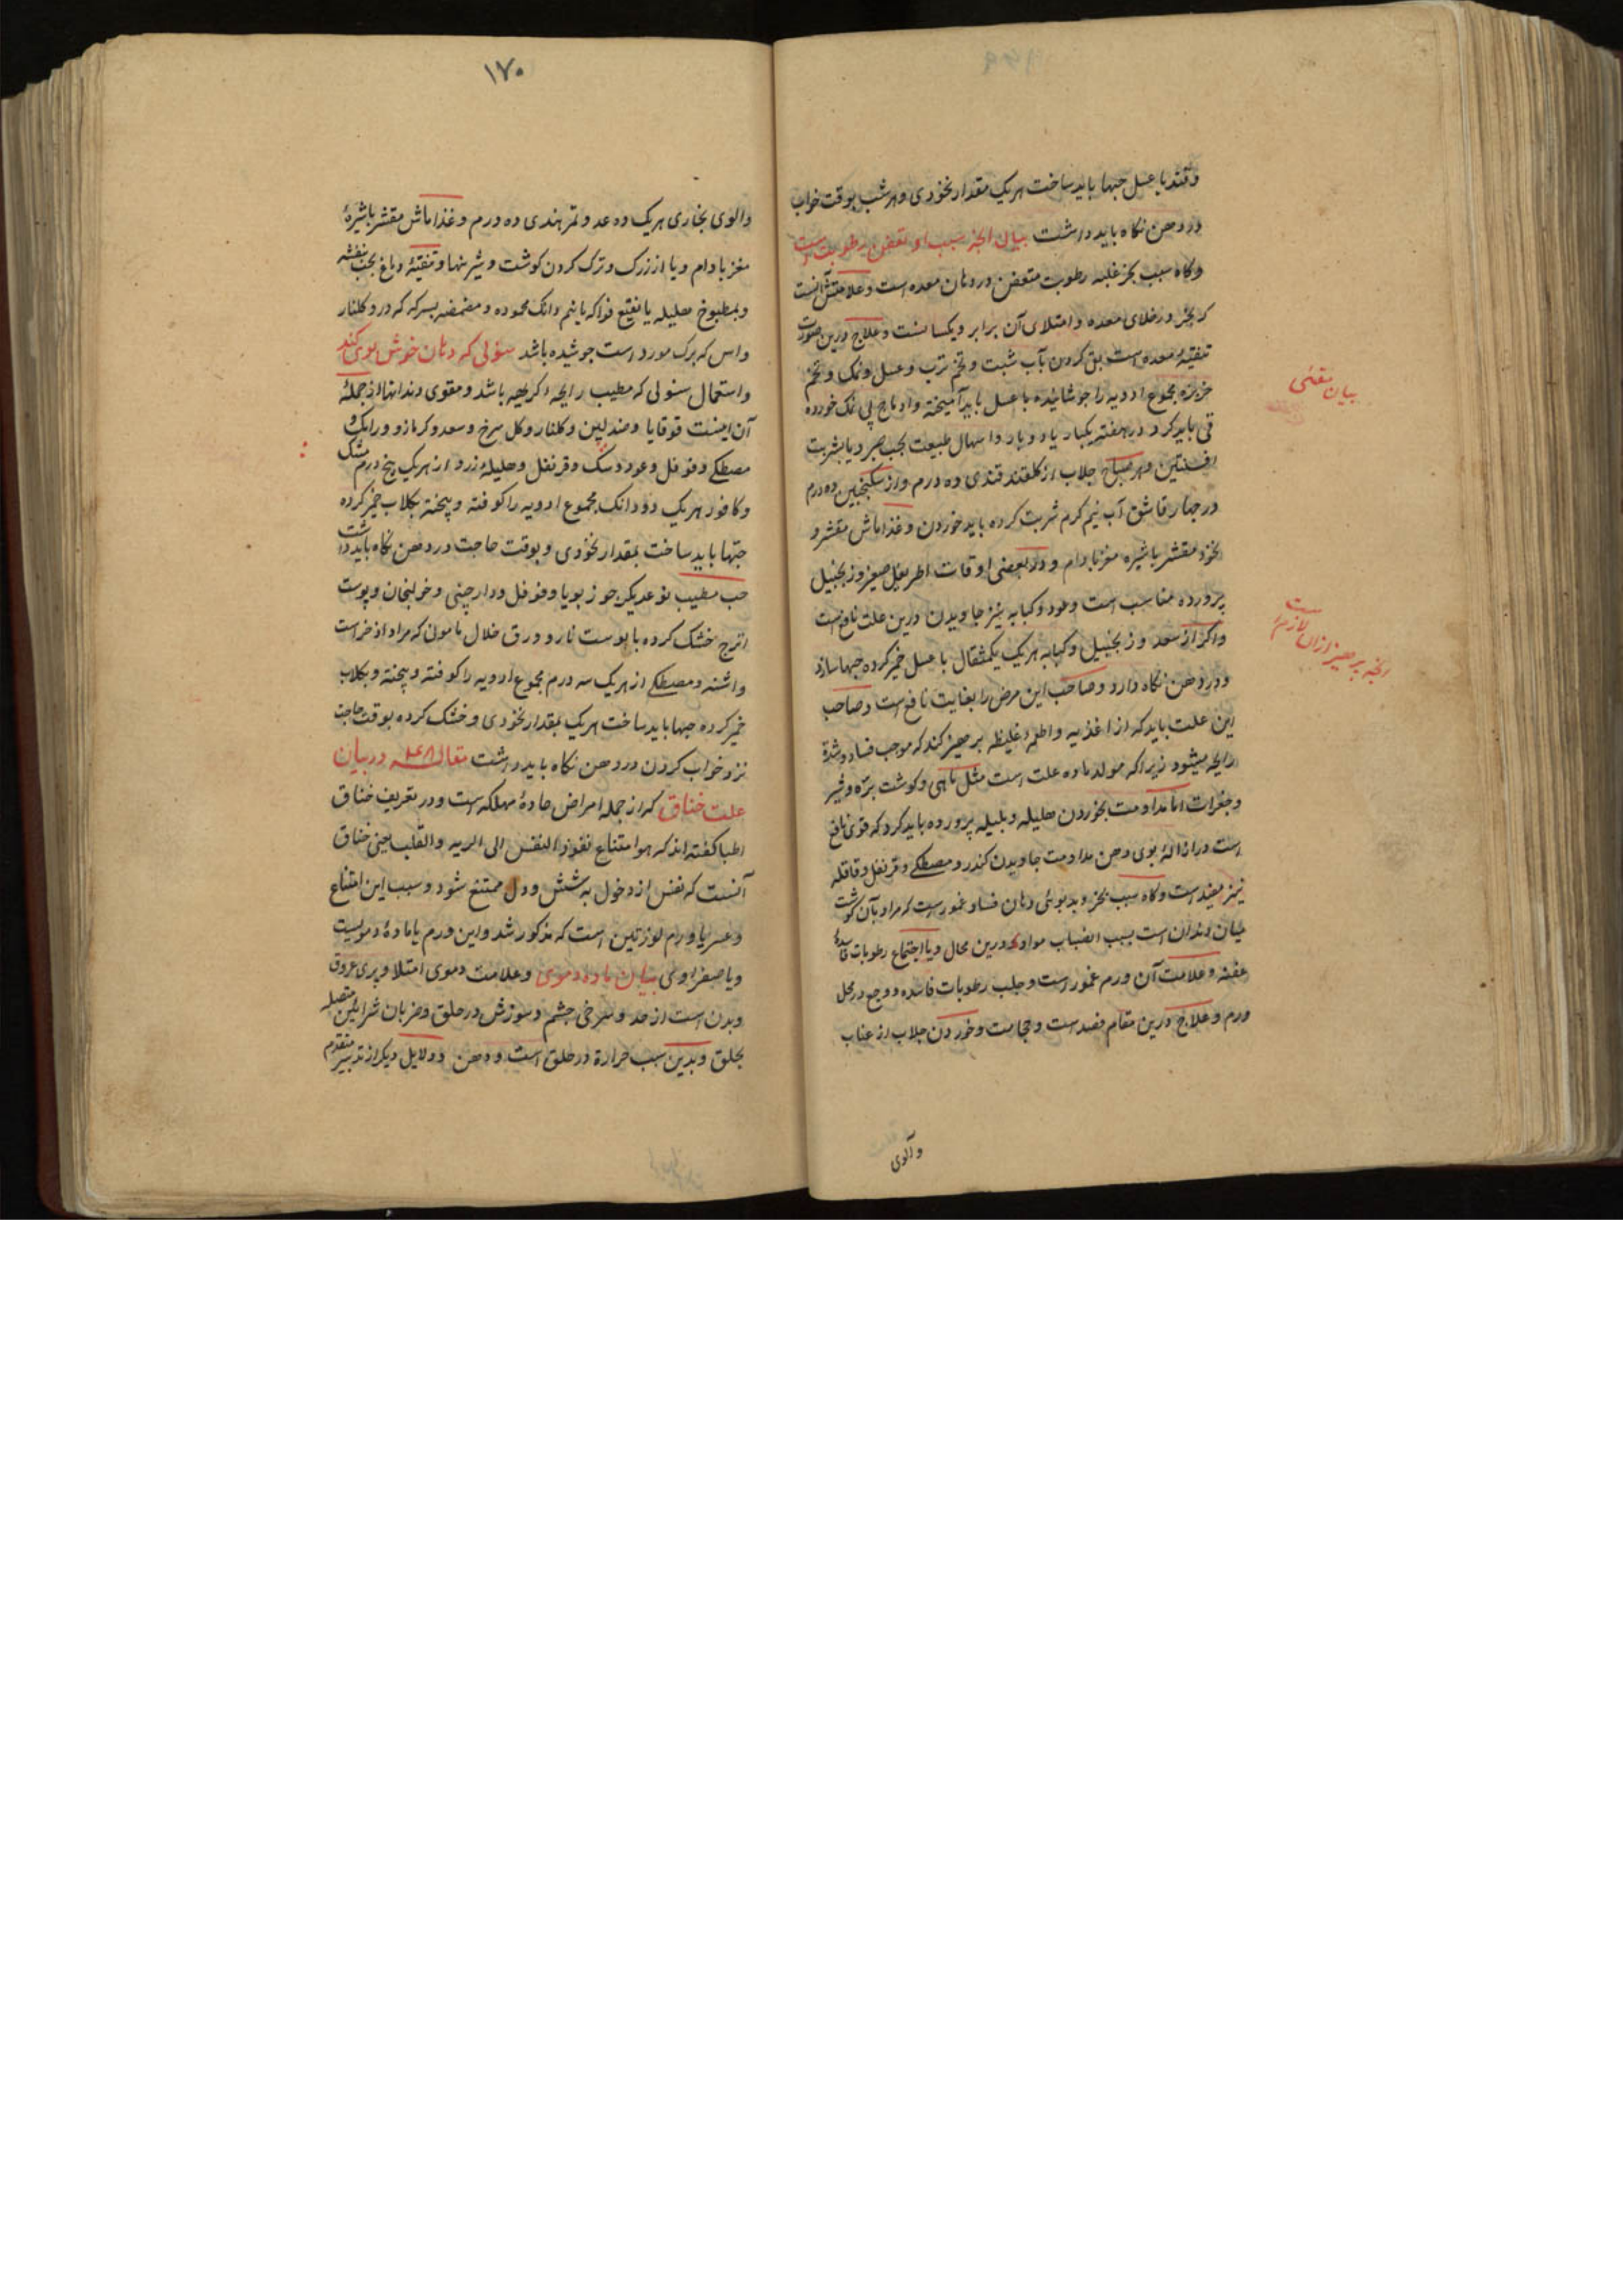 وقند با عسل حبها باید ساخت هر یک مقدار نخودی و هر شب بوقت خواب
در دهن نگاه باید داشت بیان انچه سبب او تعفن رطوبت است
و گاه سبب بخر غلبه رطوبت متعفن در دهان معده است و علامتش آنست
که بخر در خلای معده و امتلای آن برابر و یکسانست و علاج درین صورت
تنقیهٔ معده است بقی کردن بآب شبت و تخم ترب و عسل و نمک و تخم
خربزه مجموع ادویه را جوشانیده با عسل باید آمیخته و اوماج پی نمک خورده
قی باید کرد و در هفته یکبار یا دو بار و اسهال طبیعت بحب صبر و یا بشربت
افسنتین و هر صباح جلاب از کلقند قندی ده درم و از سکنجبین ده درم
در چهار قاشق آب نیم گرم شربت کرده باید خوردن و غذا ماش مقشر و
نخود مقشر با شیره مغز بادام و در بعضی اوقات اطریفل صغیر و زنجبیل
پرورده مناسب است و عود و کبابه نیز جاویدن درین علت نافع است
و اگر از سعد و زنجبیل و کبابه هر یک یکمثقال با عسل خمیر کرده حبها سازد
و در دهن نگاه دارد و صاحب این مرض را بغایت نافع است و صاحب
این علت باید که از اغذیه و اطعمهٔ غلیظه پرهیز کند که موجب فساد و شدة
رایحه میشود زیرا که مولد ماده علت است مثل ماهی و گوشت بره و شیر
و جغرات اما مداومت بخوردن هلیله و بلیله پرورده باید کرد که قوی نافع
است در ازالهٔ بوی دهن مداومت جاویدن کندر و مصطکی و قرنفل و قاقله
نیز مفید است و گاه سبب بخر و بدبوئی دهان فساد عمور است که مراد بآن گوشت
میان دندان است بسبب انصباب مواد درین محال و یا اجتماع رطوبات فاسدهٔ
عفنه و علامت آن ورم عمور است و جلب رطوبات فاسده و وجع در محل
ورم و علاج درین مقام فصد است و حجامت و خوردن جلاب از عناب
وآلوی
بیان مقئی
انچه پرهیز ازان لازم است
۱۷۰
والوی بخاری هر یک ده عدد و تمر هندی ده درم و غذا ماش مقشر با شیرهٔ
مغز بادام و یا از زرک و ترک کردن گوشت و شیرینها و تنقیهٔ دماغ بحب بنفشه
و بمطبوخ هلیله یا نقیع فواکه با نیم دانک محموده و مضمضه بسرکه که درو کلنار
و اس که برک مورد است جوشیده باشد سنونی که دهان خوش بوی کند
و استعمال سنونی که مطیب رایحهٔ کریهه باشد و مقوی دندانها از جملهٔ
آن اینست قوقایا و صندلین و کلنار و کل سرخ و سعد و کرمازو و رامک و
مصطکی و فوفل و عود و سک و قرنفل و هلیلهٔ زرد از هر یک پنج درم مشک
و کافور هر یک دو دانک مجموع ادویه را کوفته و پیخته بکلاب خمیر کرده
حبها باید ساخت بمقدار نخودی و بوقت حاجت در دهن نگاه باید داشت
حب مطیب نوعدیکر جوز بویا و فوفل و دارچینی و خولنجان و پوست
اترج خشک کرده با پوست نار و ورق خلال مامونی که مراد اذخر است
و اشنه و مصطکی از هر یک سه درم مجموع ادویه را کوفته و پیخته و بکلاب
خمیر کرده حبها باید ساخت هر یک بمقدار نخودی و خشک کرده بوقت حاجت
نزد خواب کردن در دهن نگاه باید داشت مقاله در بیان
علت خناق که از جمله امراض حادهٔ مهلکه است و در تعریف خناق
اطبا گفته‌اند که هو امتناع نفوذ النفس الی الریه و القلب یعنی خناق
آنست که نفس از دخول به شش و دل ممتنع شود و سبب این امتناع
و عسر یا ورم لوزتین است که مذکور شد و این ورم یا مادهٔ دمویست
و یا صفراوی بیان ماده دموی و علامت دموی امتلا و پری عروق
و بدن است از مد و سرخی چشم و سوزش در حلق و ضربان شرائین متصله
بحلق و بدین سبب حرارة در حلق است و دهن و دلایل دیکر از تدبیر متقدم